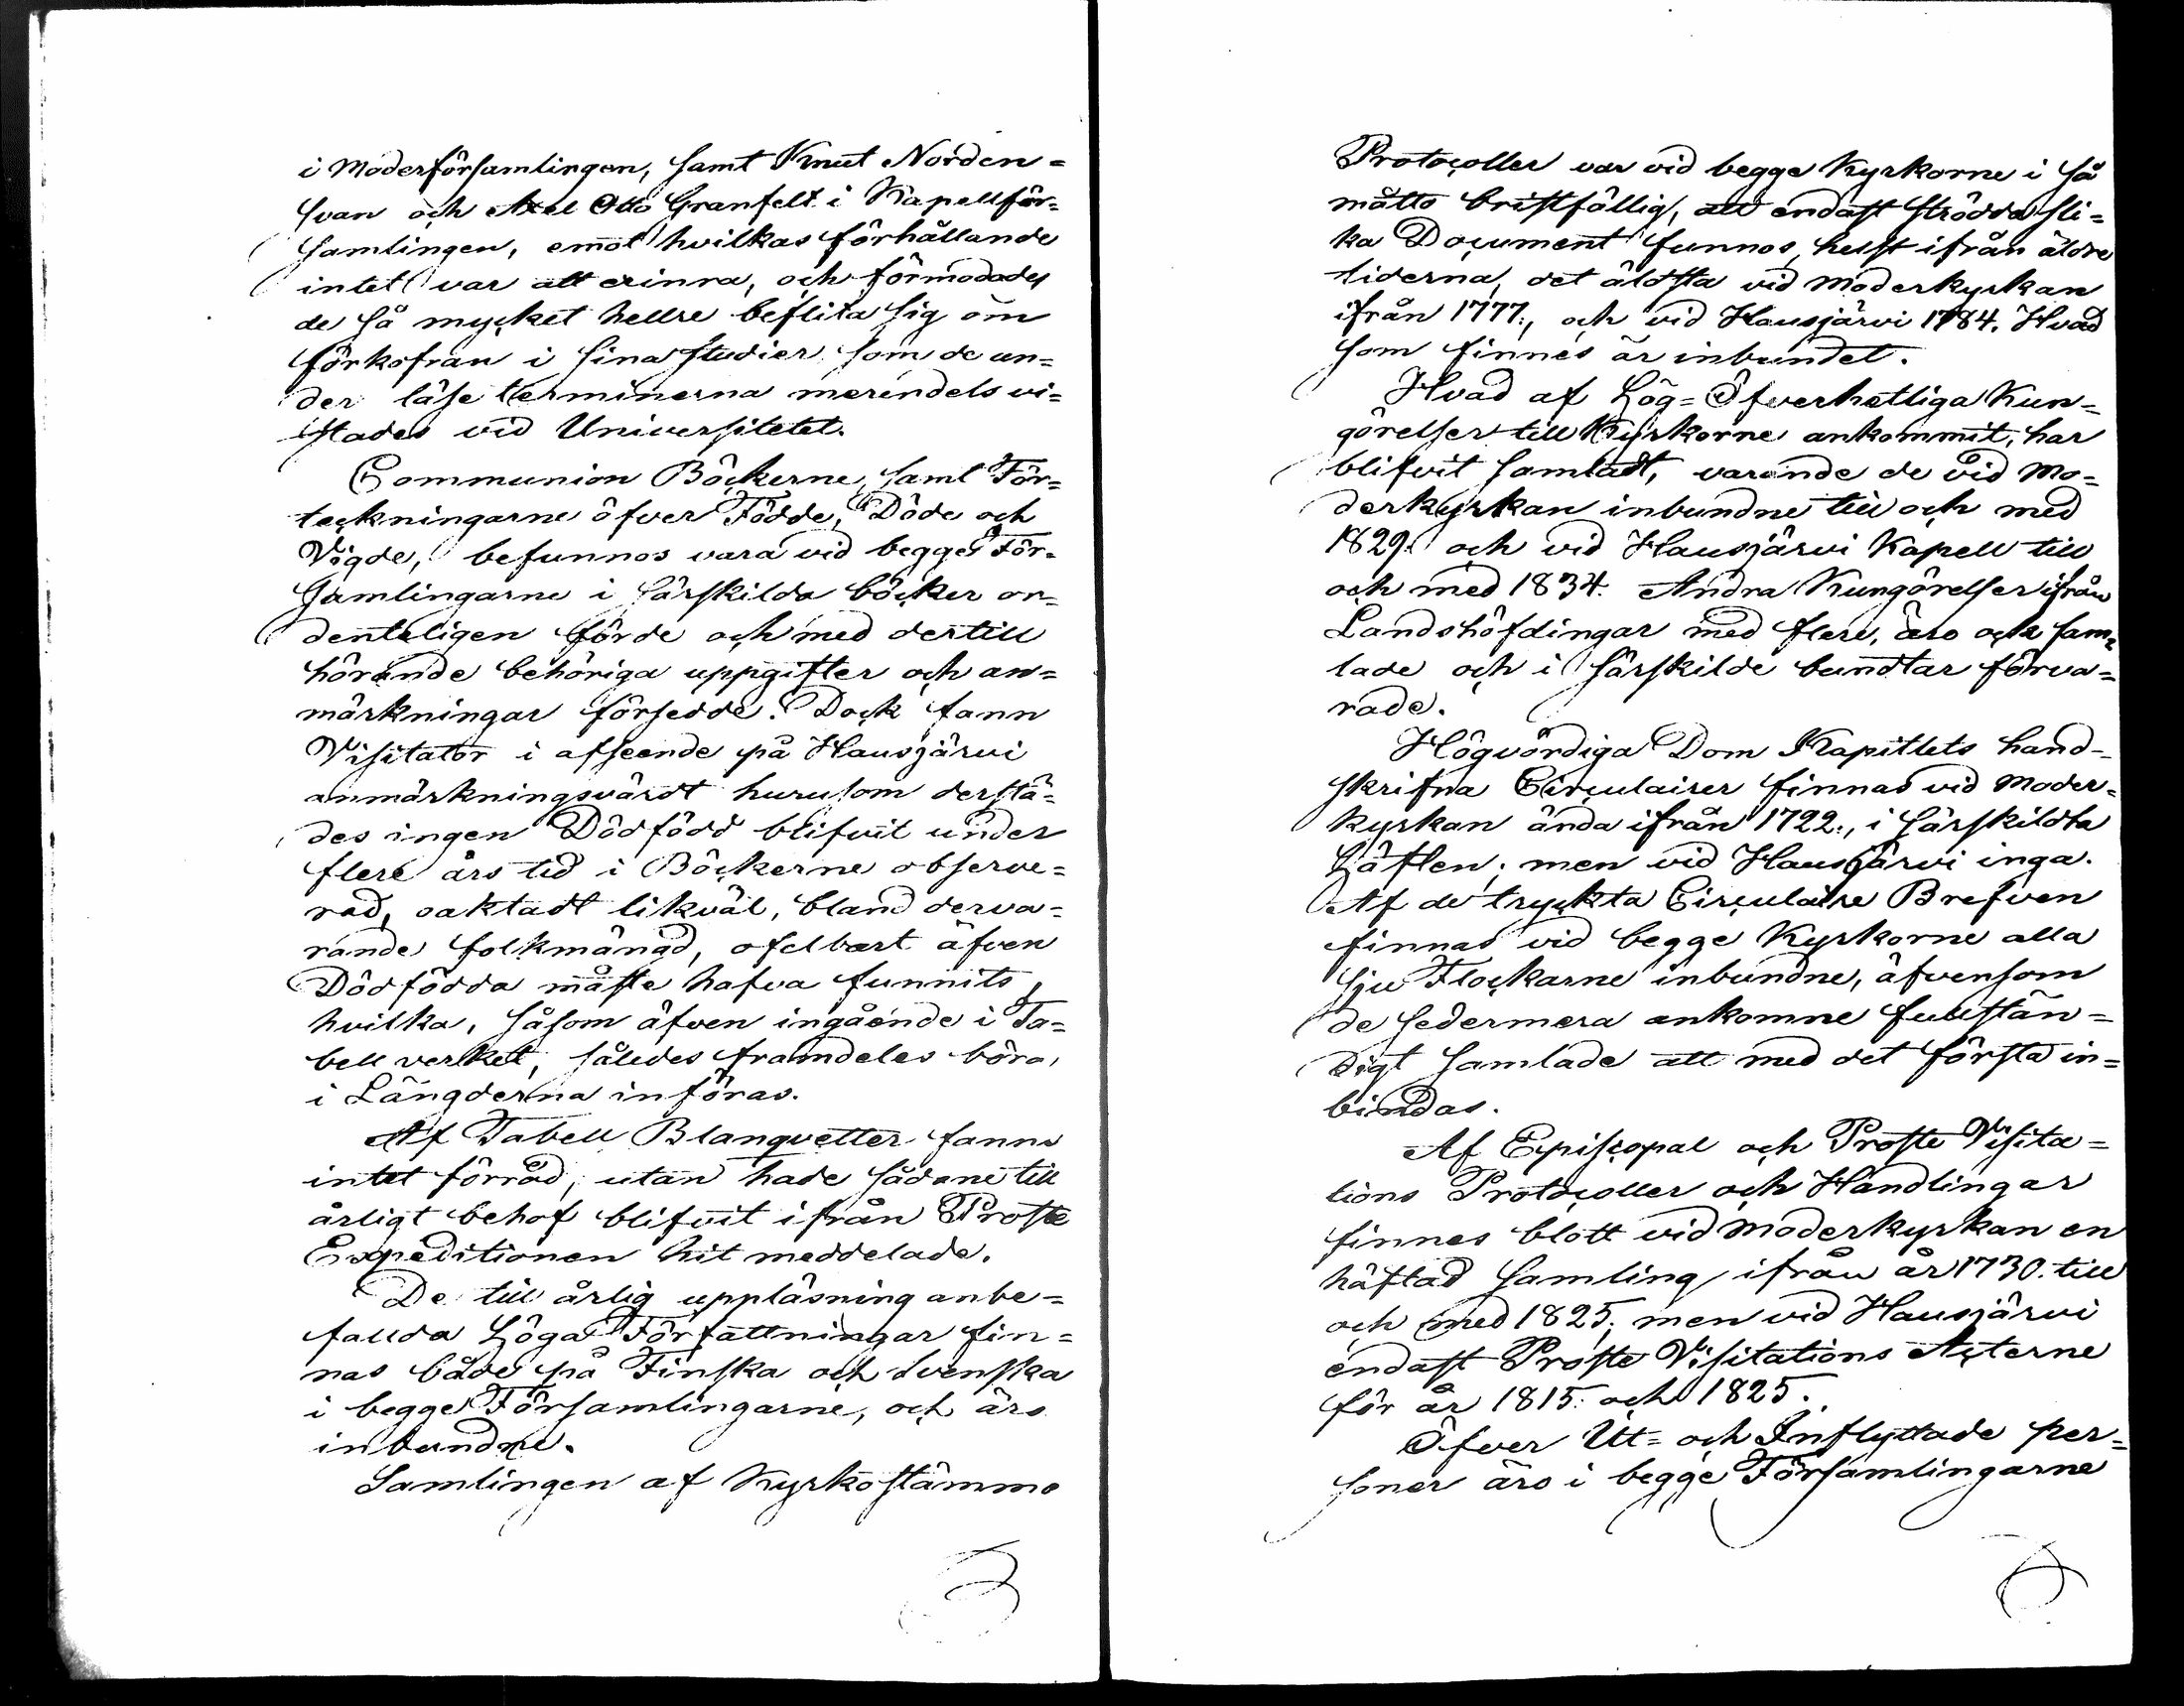 i Moderförsamlingen, samt Knut Norden=
svan och Axel Otto Granfelt i Kapellför=
samlingen, emot hvilkas förhållande
intet var att erinra, och förmodades
de så mycket hellre beflita sig om
förkofran i sina studier som de un=
der läse terminerna merendels vi=
stades vid Universitetet.
Communion Böckerne, samt För=
teckningarne öfver Födde, Döde och
Vigde, befunnos vara vid begge För=
samlingarne i särskilda böcker or=
denteligen förde och med dertill
hörande behöriga uppgifter och an=
märkningar försedde. Dock fann
Visitator i afseende på Hausjärvi
anmärkningsvärdt hurusom derstä=
des ingen Dödfödd blifvit under
flere års tid i Böckerne observe=
rad, oaktadt likväl, bland derva=
rande folkmängd, ofelbart äfven
Dödfödda måste hafva funnits,
hvilka, såsom äfven ingående i Ta=
bell verket, således framdeles böra,
i Längderna införas.
Af Tabell Blanqvetter fanns
intet förråd, utan hade sådane till
årligt behof blifvit ifrån Proste
Expeditionen hit meddelade.
De till årlig uppläsning anbe=
fallda Höga Författningar fin=
nas både på Finska och Svenska
i begge Församlingarne, och äro
inbundne.
Samlingen af Kyrkostämmo
Protocoller var vid begge Kyrkorne i så
måtto bristfällig, att endast strödda sli=
ka Document funnos, helst ifrån äldre
tiderna, det äldsta vid Moderkyrkan
ifrån 1777., och vid Hausjärvi 1784. Hvad
som finnes är inbundet.
Hvad af Hög=Öfverhetliga Kun=
görelser till Kyrkorne ankommit, har
blifvit samladt, varande de vid Mo=
derkyrkan inbundne till och med
1829. och vid Hausjärvi Kapell till
och med 1834. Andra Kungörelser ifrån
Landshöfdingar med flere, äro ock sam=
lade och i särskilde bundtar förva=
rade.
Högvördiga Dom Kapitlets hand=
skrifna Circulairer finnas vid Moder=
kyrkan ända ifrån 1722., i särskildta
Häften; men vid Hausjärvi inga.
Af de tryckta Circulaire Brefven
finnas vid begge Kyrkorne alla
sju Flockarne inbundne, äfvensom
de sedermera ankomne fullstän=
digt samlade att med det första in=
bindas.
Af Episcopal och Proste Visita=
tions Protocoller och Handlingar
finnes blott vid Moderkyrkan en
häftad samling ifrån år 1730. till
och med 1825; men vid Hausjärvi
endast Proste Visitations Acterne
för år 1815. och 1825.
Öfver Ut= och Inflyttade per=
soner äro i begge Församlingarne